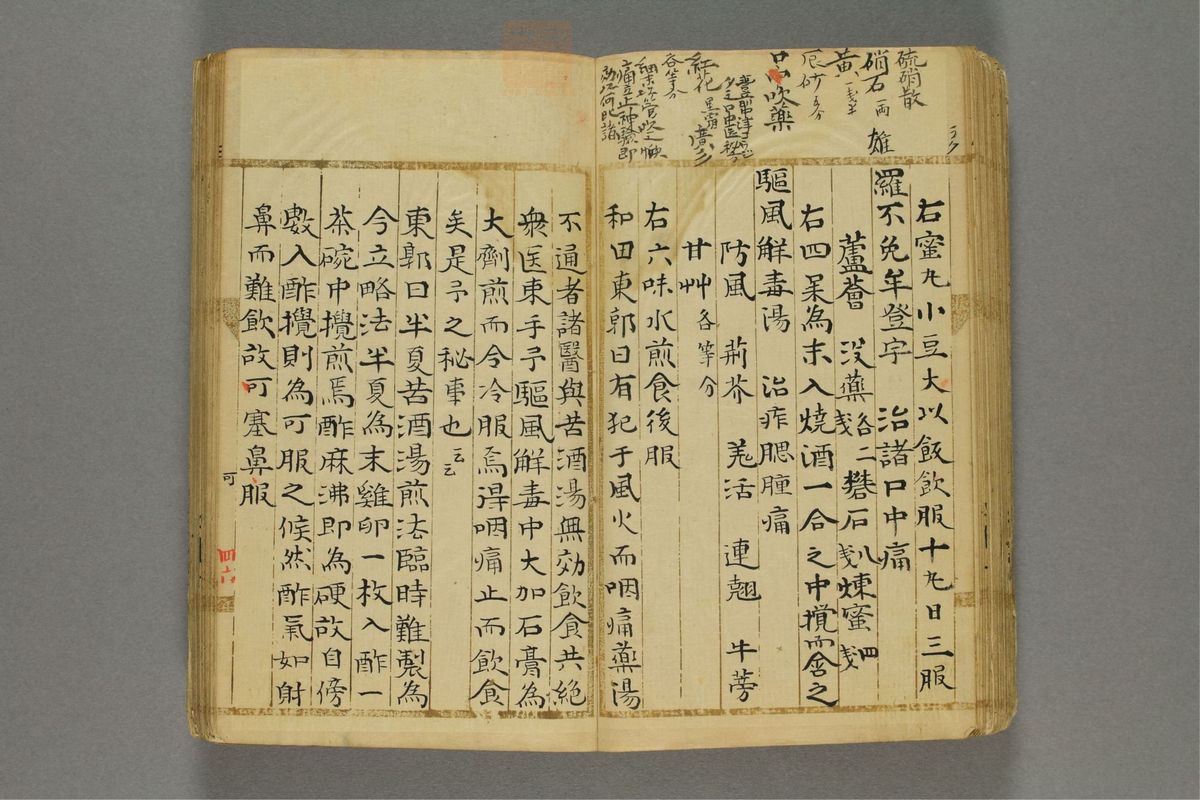 硫硝散
硝石 一両 雄
黄 一戔半
辰砂 五分
口中吹薬
紅花 黒霜
各等分
右蜜丸小豆大以飯飲服十丸日三服
羅不免牟登宇 治諸口中痛
蘆薈 没薬 各二戔 礬石 八戔 煉蜜 四戔
右四味為末入焼酒一合之中攪而含之
駆風解毒湯 治痄腮腫痛
防風 荊芥 羌活 連翹 牛蒡
甘艸 各等分
右六味水煎食後服
和田東郭曰有犯于風火而咽痛薬湯
不通者諸醫與苦酒湯無効飲食共絶
衆医束手予駆風解毒中大加石膏為
大劑煎而令冷服焉得咽痛止而飲食
矣是予之秘事也云云
東郭曰半夏苦酒湯煎法臨時難製為
今立略法半夏為末雞卵一枚入酢一
茶碗中攪煎焉酢麻沸即為硬故自傍
數入酢攪則為可服之候然酢氣如射
鼻而難飲故可塞鼻服
可
四十